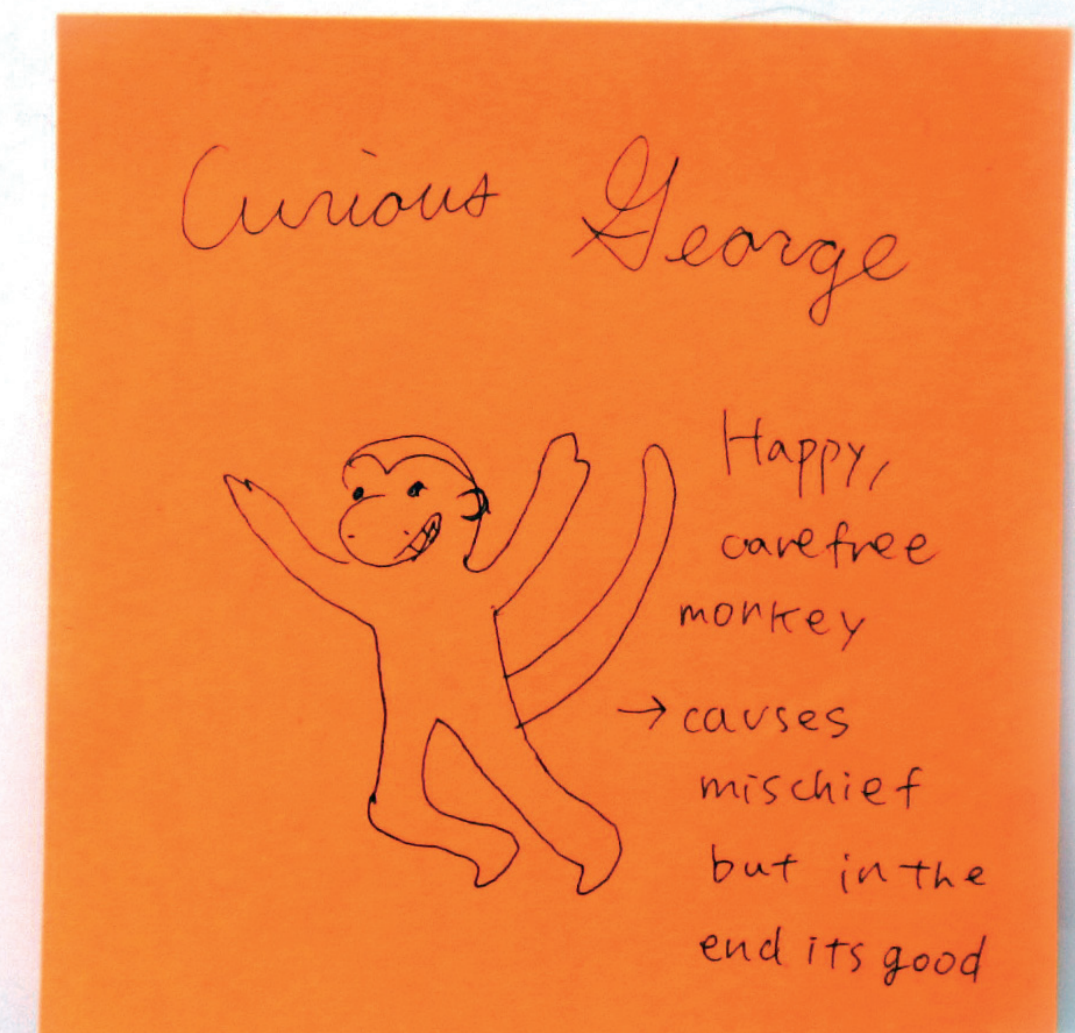 Curious George
Happy,
carefree
monkey
→ causes
mischief
but in the
end its good